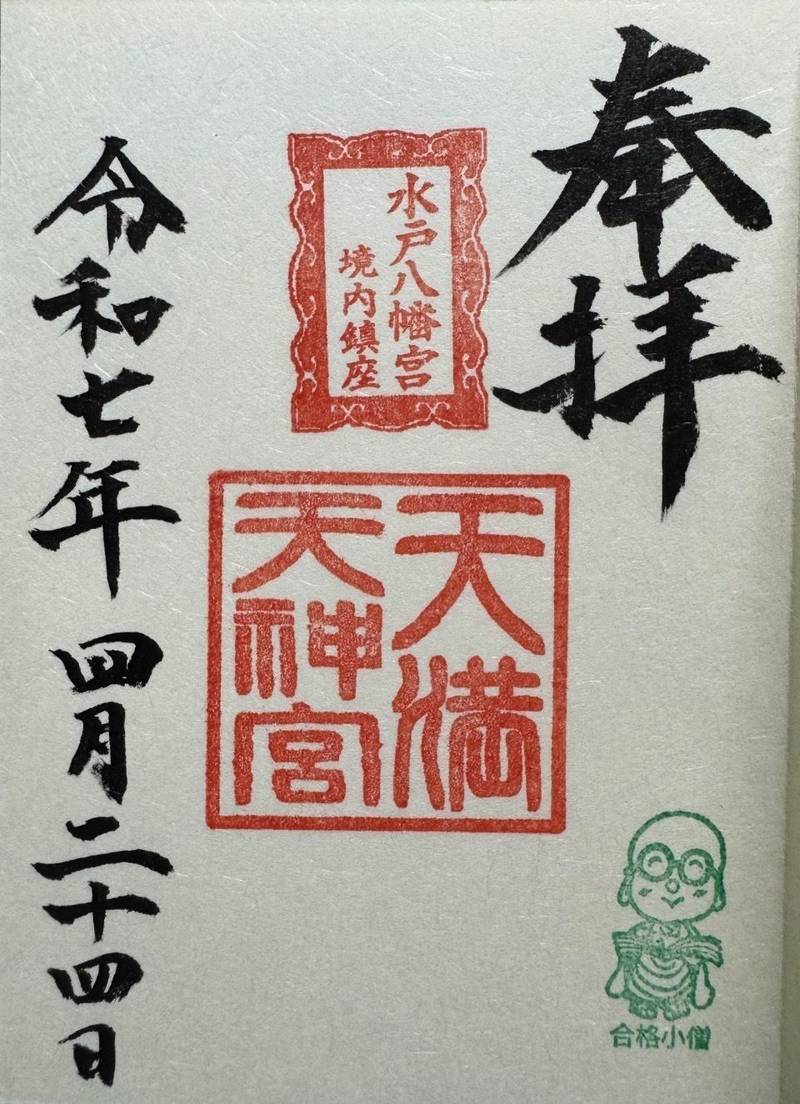 奉拝
水戸八幡宮
境内鎮座
天満
天神宮
令和七年 四月二十四日
合格小僧